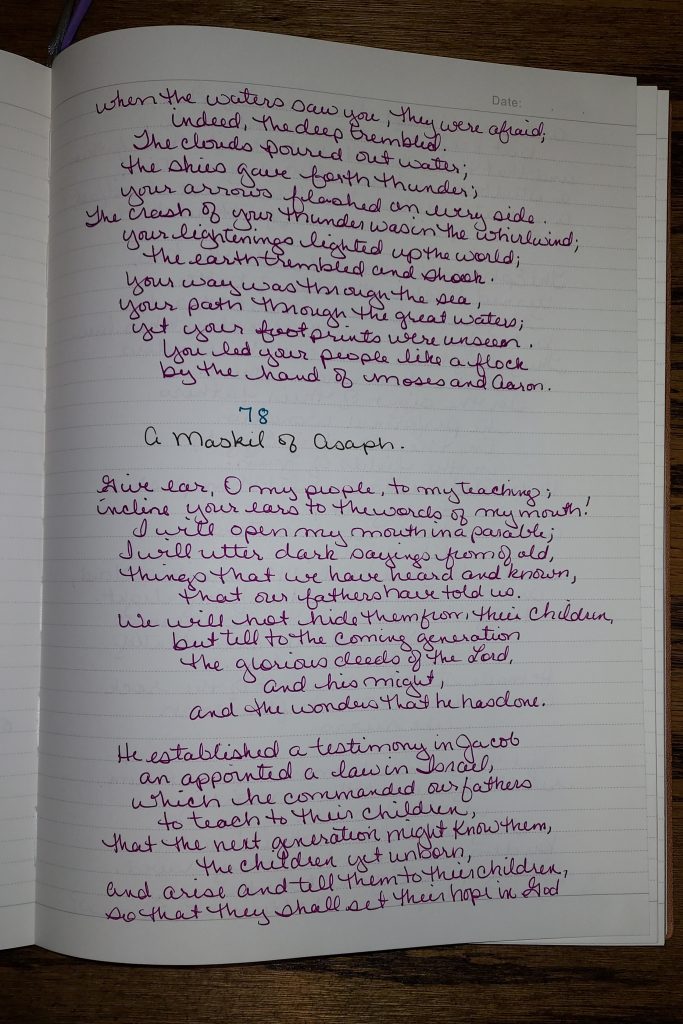 Date:
when the waters saw you, they were afraid;
indeed, the deep trembled.
The clouds poured out water;
the skies gave forth thunder;
your arrows flashed on every side.
The crash of your thunder was in the whirlwind;
your lightenings lighted up the world;
the earth trembled and shook.
Your way was through the sea,
your path through the great waters;
yet your footprints were unseen.
You led your people like a flock
by the hand of Moses and Aaron.
78
A Maskil of Asaph.
Give ear, O my people, to my teaching;
incline your ears to the words of my mouth!
I will open my mouth in a parable;
I will utter dark sayings from of old,
things that we have heard and known,
that our fathers have told us.
We will not hide them from their children,
but tell to the coming generation
the glorious deeds of the Lord,
and his might,
and the wonders that he has done.
He established a testimony in Jacob
an appointed a law in Israel,
which he commanded our fathers
to teach to their children,
that the next generation might know them,
the children yet unborn,
and arise and tell them to their children,
so that they shall set their hope in God